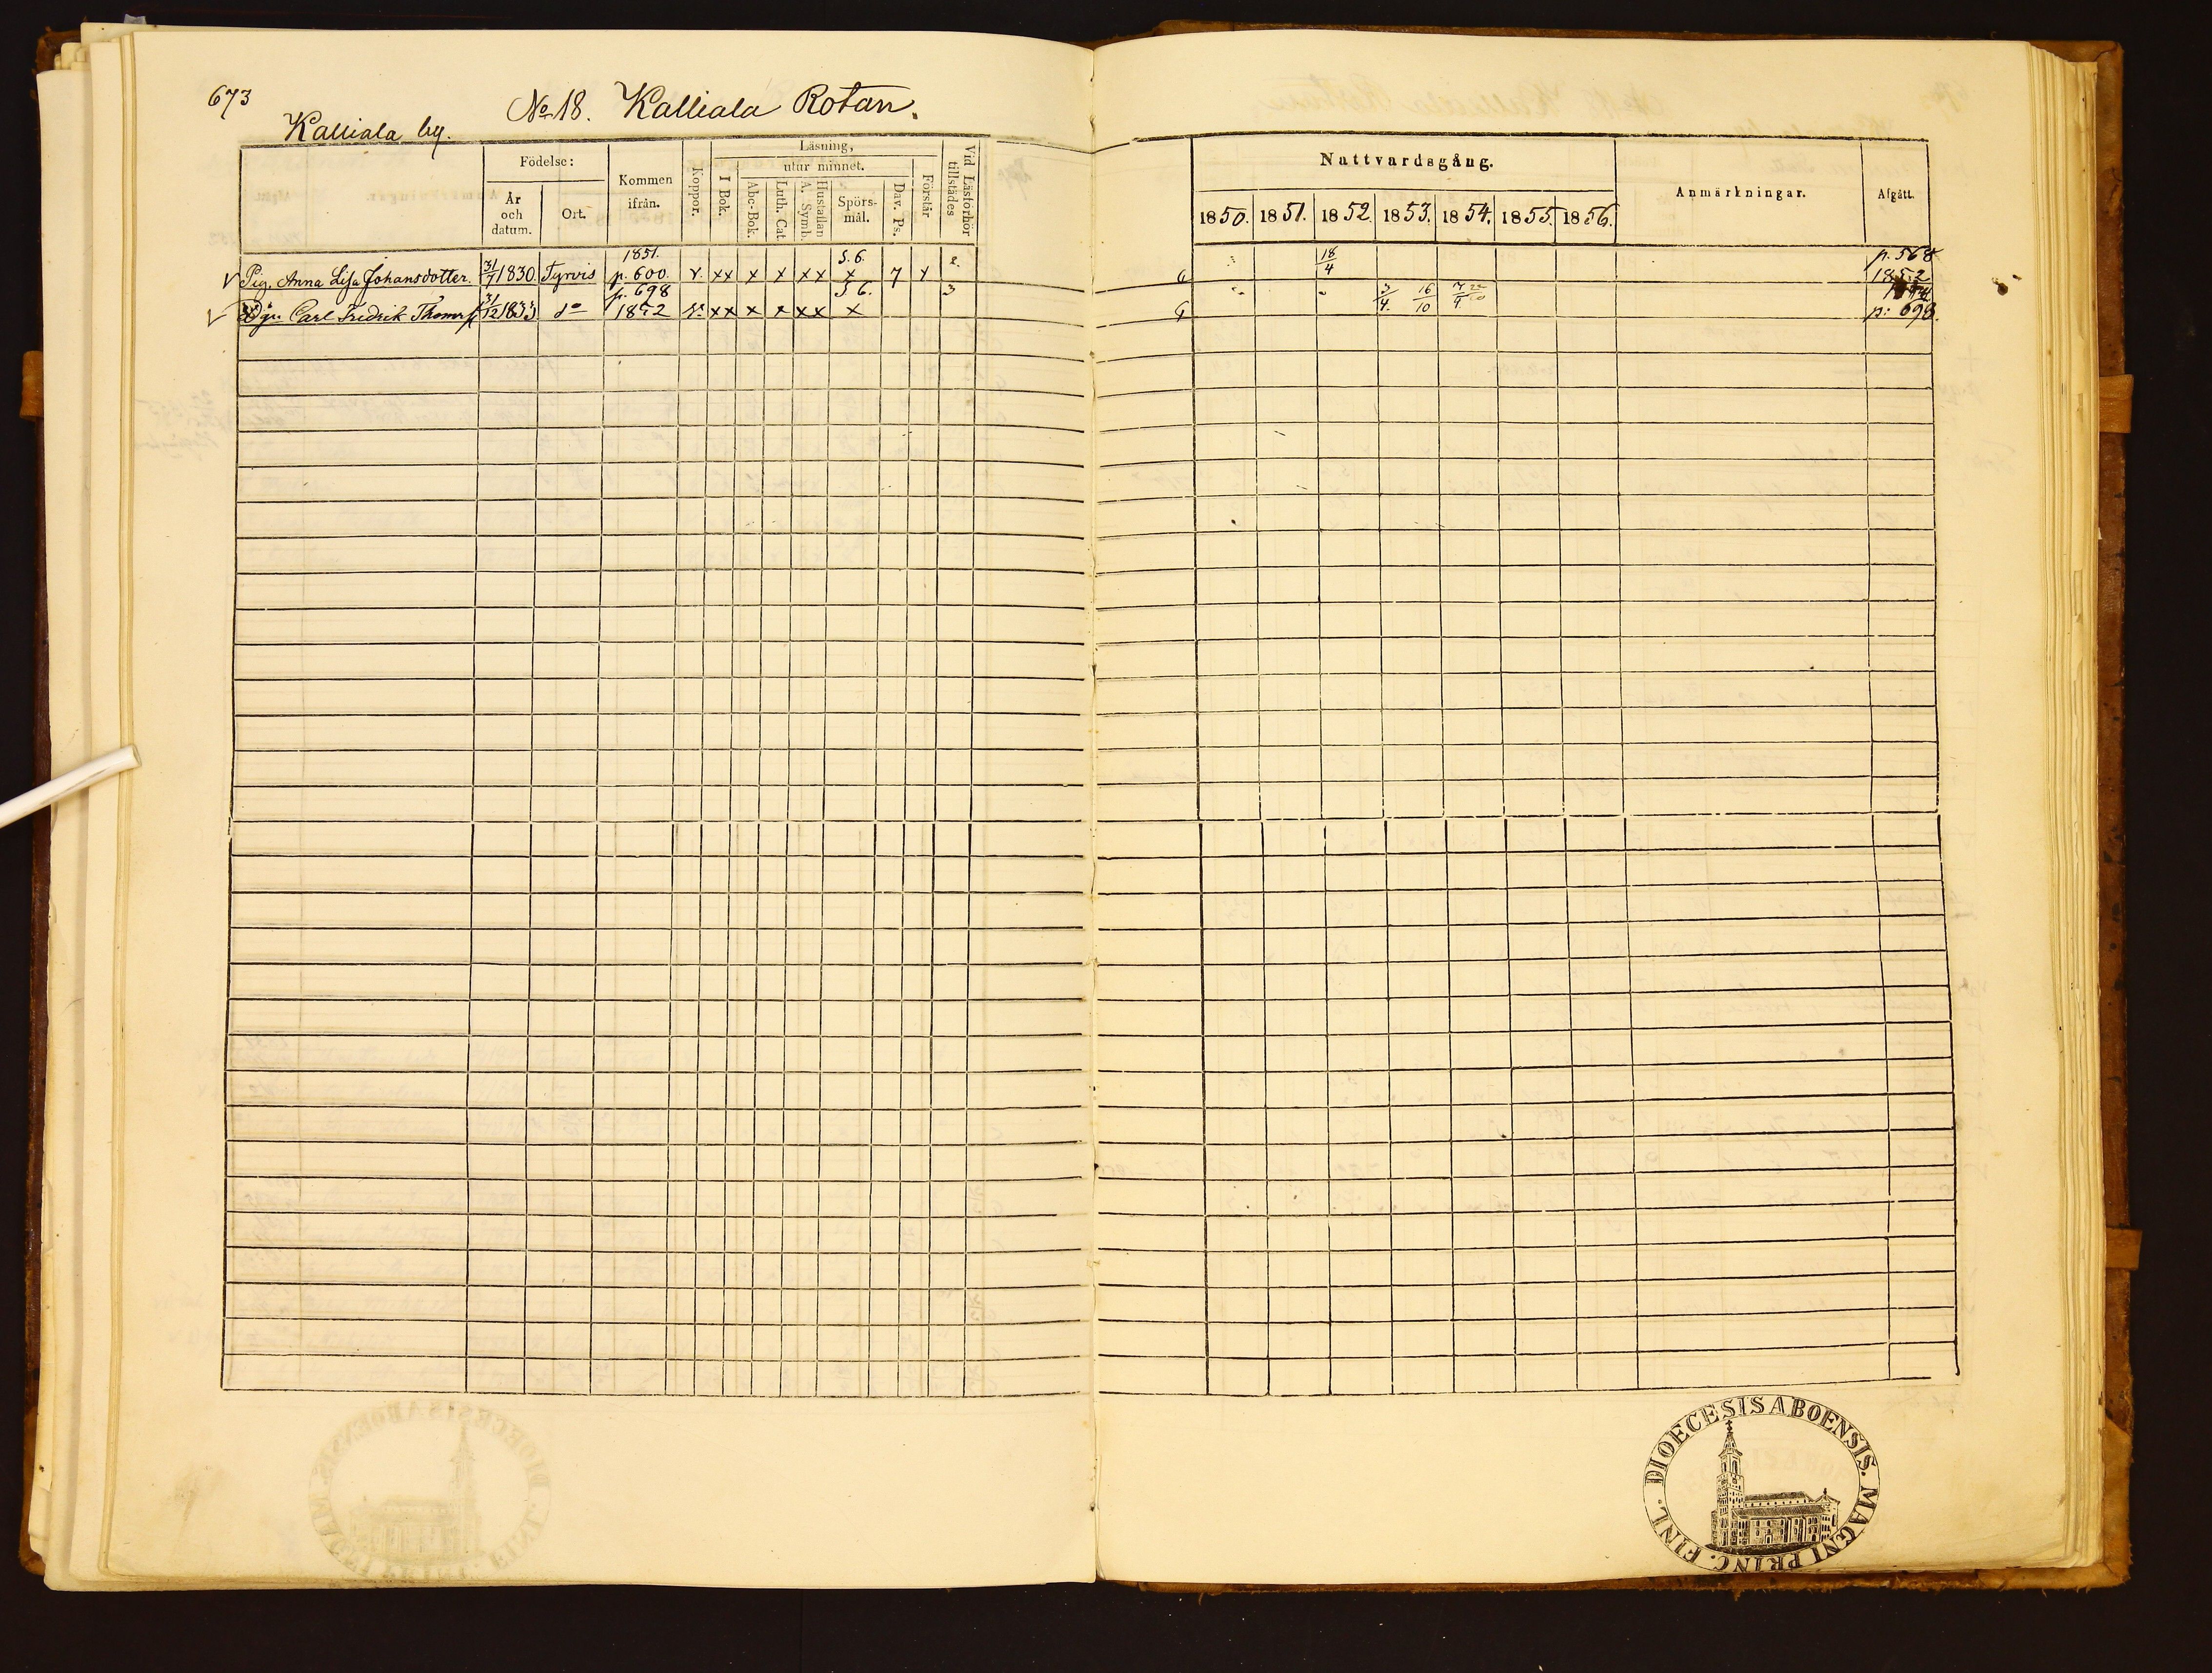 673
No 18. Kalliala Rotan.
Kalliala by.
Födelse:
År och datum.
Ort.
Kommen ifrån.
Koppor.
Läsning,
I Bok.
utur minnet.
Abc-Bok.
Luth. Cat.
Hustaflan A. Symb.
Spörs-mål.
Dav. Ps.
Förstår
Vid Läsförhör tillstädes
Nattvardsgång.
1850. 1851. 1852. 1853. 1854. 1855. 1856.
Anmärkningar.
Afgått.
1851. S. 6. 18/4 p. 568
Pig. Anna Lisa Johansdotter. 31/7 1830. Tyrvis p. 600. v. xx x x xx x 7 x 2. 1852
p. 698 S 6. 3 3/4. 16/10
Carl Fredrik 31/12 1833 do 1852 v. xx x x xx x p: 698.
DIOECESIS ABOENSIS. MAGNI PRINC. FINL.